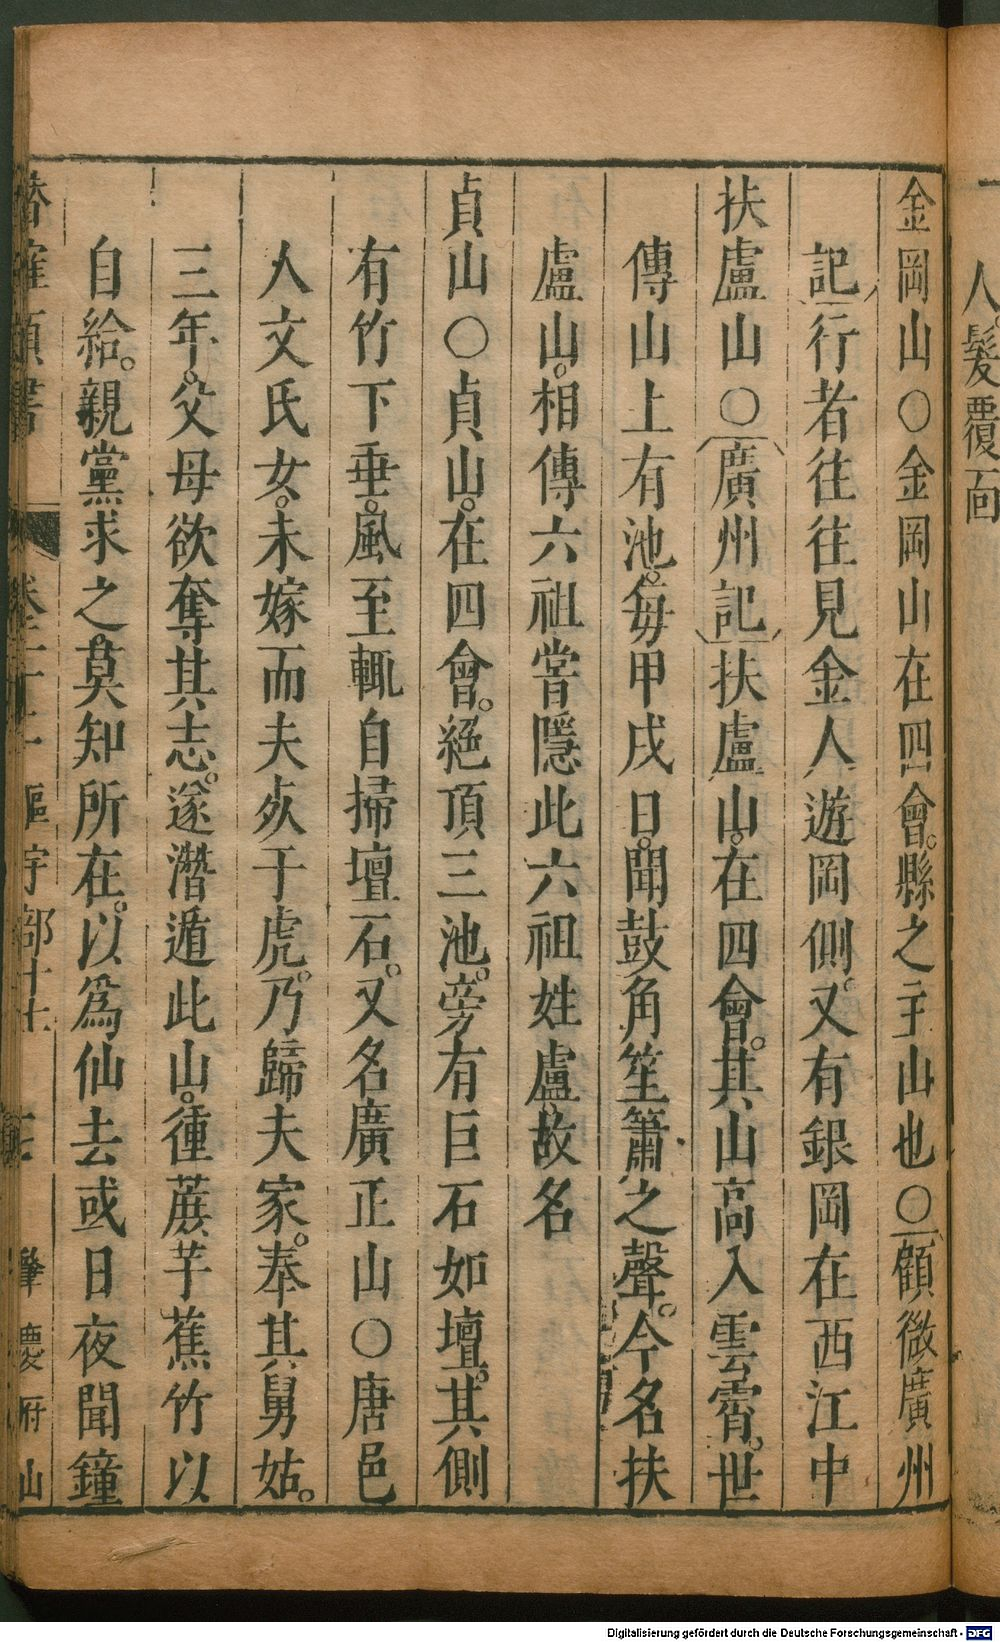 人髮覆面
金岡山○金岡山在四會縣之主山也○顧微廣州
記行者往往見金人遊岡側又有銀岡在西江中
扶盧山○廣州記扶盧山在四會其山高入雲霄世
傳山上有池每甲戌日聞鼓角笙簫之聲今名扶
盧山相傳六祖嘗隱此六祖姓盧故名
貞山○貞山在四會絕頂三池旁有巨石如壇其側
有竹下垂風至輒自掃壇石又名廣正山○唐邑
人文氏女未嫁而夫歿于虎乃歸夫家奉其舅姑
三年父母欲奪其志遂潛遁此山種蔗芋蕉竹以
自給親黨求之莫知所在以為仙去或日夜聞鐘
類書 卷 宇部十七 肇慶府山
Digitalisierung gefördert durch die Deutsche Forschungsgemeinschaft - DFG